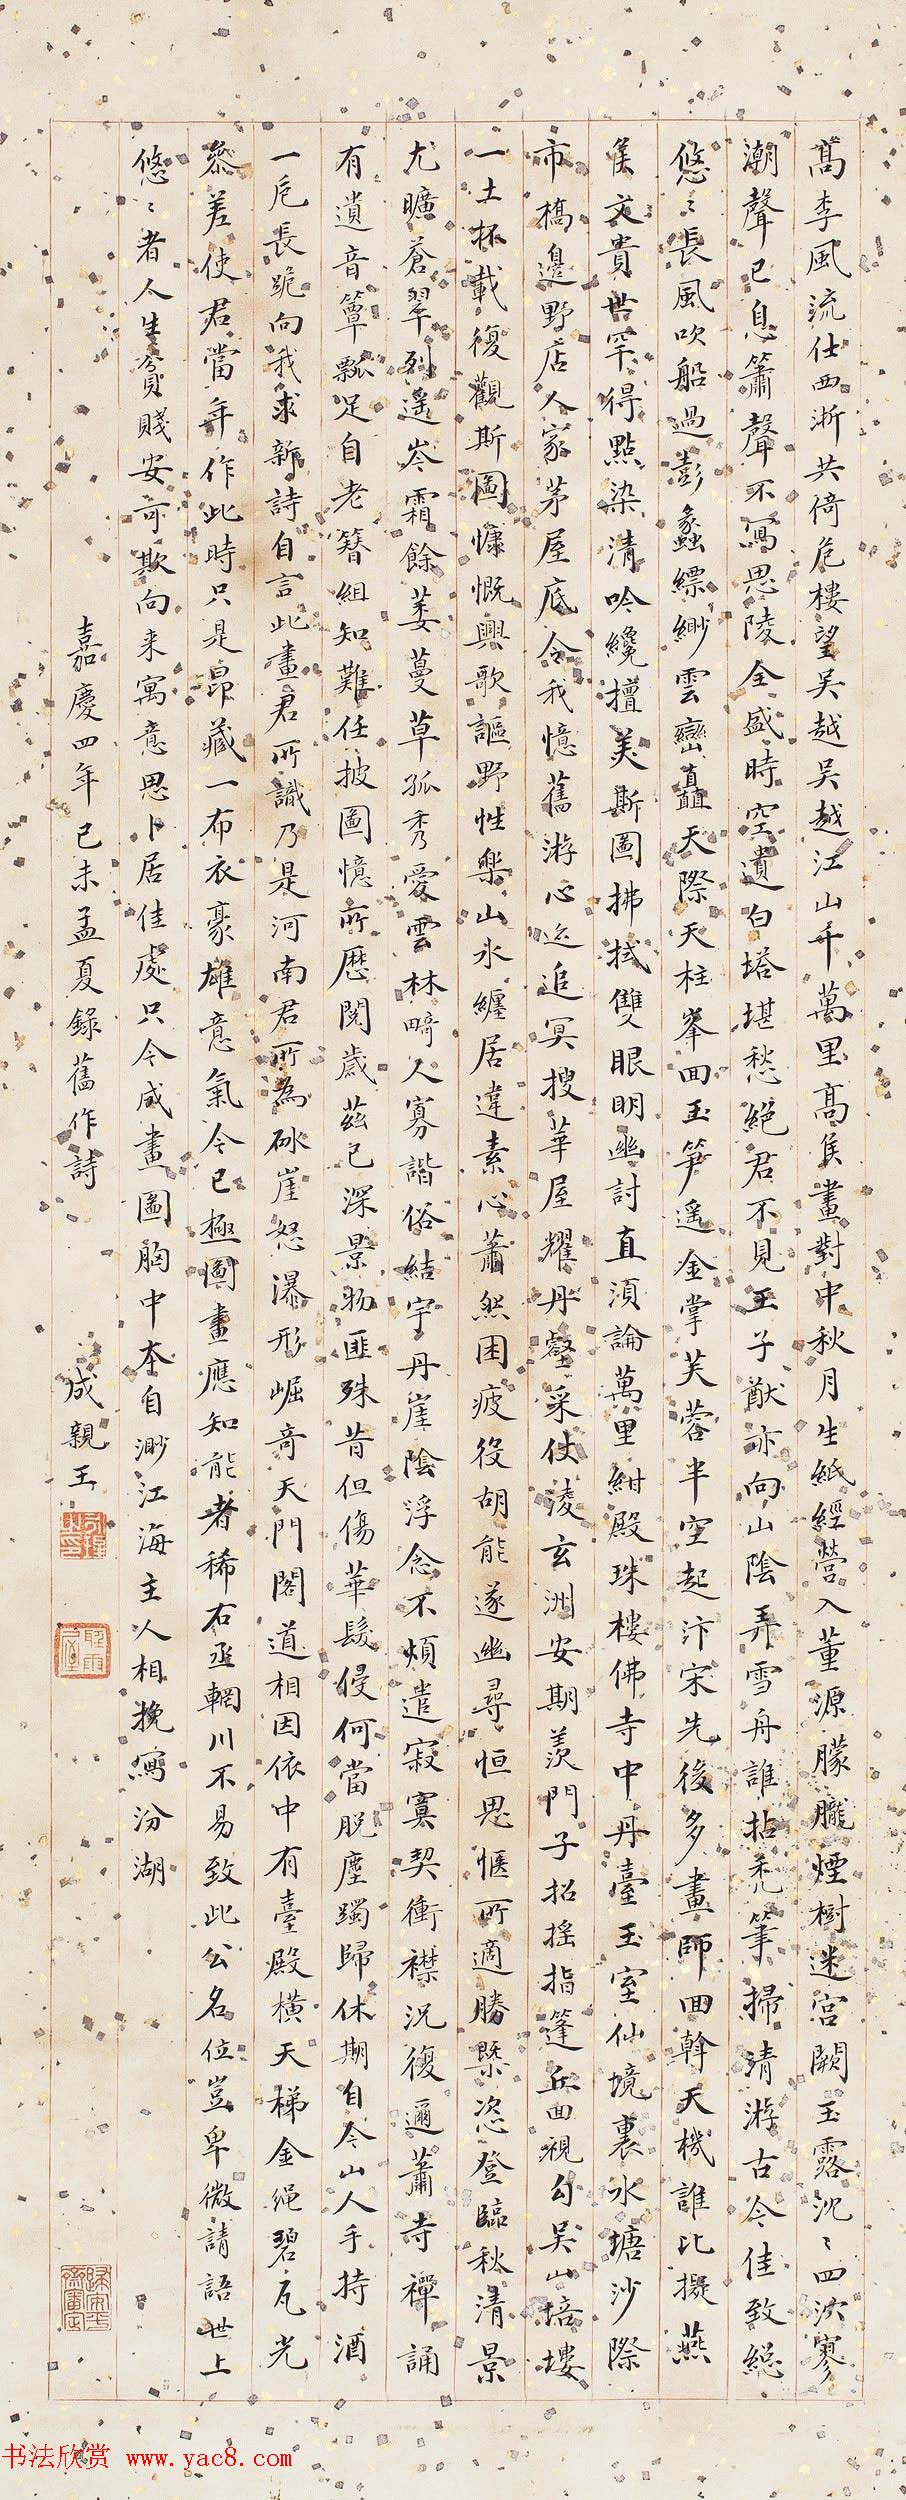 髙李風流仕西浙共倚危樓望吳越吳越江山千萬里髙侯畫對中秋月生紙經營入董源朦朧煙樹迷宮闕玉露沉〻四泬寥
潮聲已息簫聲不寫思陵全盛時空遺白塔堪愁絕君不見王子猷亦向山陰弄雪舟誰拈禿筆掃清游古今佳致総
悠〻長風吹船過彭蠡縹緲雲巒矗天際天柱峯回玉笋遙金掌芙蓉半空起汴宋先後多畫師回斡天機誰比擬燕
侯文貴世罕得點染清吟纔擅美斯圖拂拭雙眼明幽討直須論萬里紺殿珠樓佛寺中丹臺玉室仙境裏水塘沙際
市橋邊野店人家茅屋底令我憶舊游心迄追冥搜華屋耀丹壑采仗淩玄洲安期羨門子招搖指篷丘面視勾吳山培塿
一土杯載復觀斯圖慷慨興歌謳野性樂山水纏居違素心蕭然困疲役胡能遂幽尋恒思愜所適勝槩恣登臨秋清景
尤曠蒼翠列遙岑霜餘萎蔓草孤秀愛雲林畸人寡諧俗結宇丹崖陰浮念不煩遣寂寞契衝襟況復邇蕭寺禪誦
有遺音簞瓢足自老簪組知難任披圖憶所歷閱歲茲已深景物匪殊昔但傷華髮侵何當脫塵躅歸休期自今山人手持酒
一卮長跪向我求新詩自言此畫君所識乃是河南君所為砯崖怒瀑形崛奇天門閣道相因依中有臺殿橫天梯金繩碧瓦光
參差使君當年作此時只是昂藏一布衣豪雄意氣今已極圖畫應知能者稀右丞輞川不易致此公名位豈卑微請語世上
悠〻者人生貧賤安可欺向来寓意思卜居佳處只今成畫圖胸中本自渺江海主人相挽寫汾湖
嘉慶四年己未孟夏錄舊作詩
成親王
书法欣赏 www.yac8.com